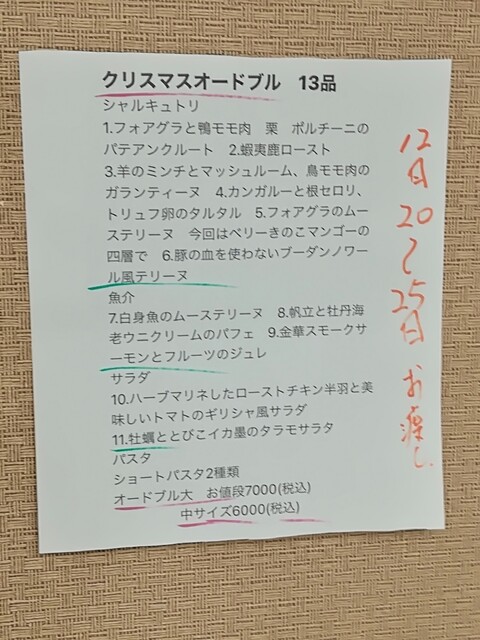 クリスマスオードブル　13品
シャルキュトリ
1.フォアグラと鴨モモ肉　栗　ポルチーニの
パテアンクルート　2.蝦夷鹿ロースト
3.羊のミンチとマッシュルーム、鳥モモ肉の
ガランティーヌ　4.カンガルーと根セロリ、
トリュフ卵のタルタル　5.フォアグラのムー
ステリーヌ　今回はベリーきのこマンゴーの
四層で　6.豚の血を使わないブーダンノワー
ル風テリーヌ
魚介
7.白身魚のムーステリーヌ　8.帆立と牡丹海
老ウニクリームのパフェ　9.金華スモークサ
ーモンとフルーツのジュレ
サラダ
10.ハーブマリネしたローストチキン半羽と美
味しいトマトのギリシャ風サラダ
11.牡蠣ととびこイカ墨のタラモサラタ
パスタ
ショートパスタ2種類
オードブル大　お値段7000(税込)
中サイズ6000(税込)
12月20～25日お渡し